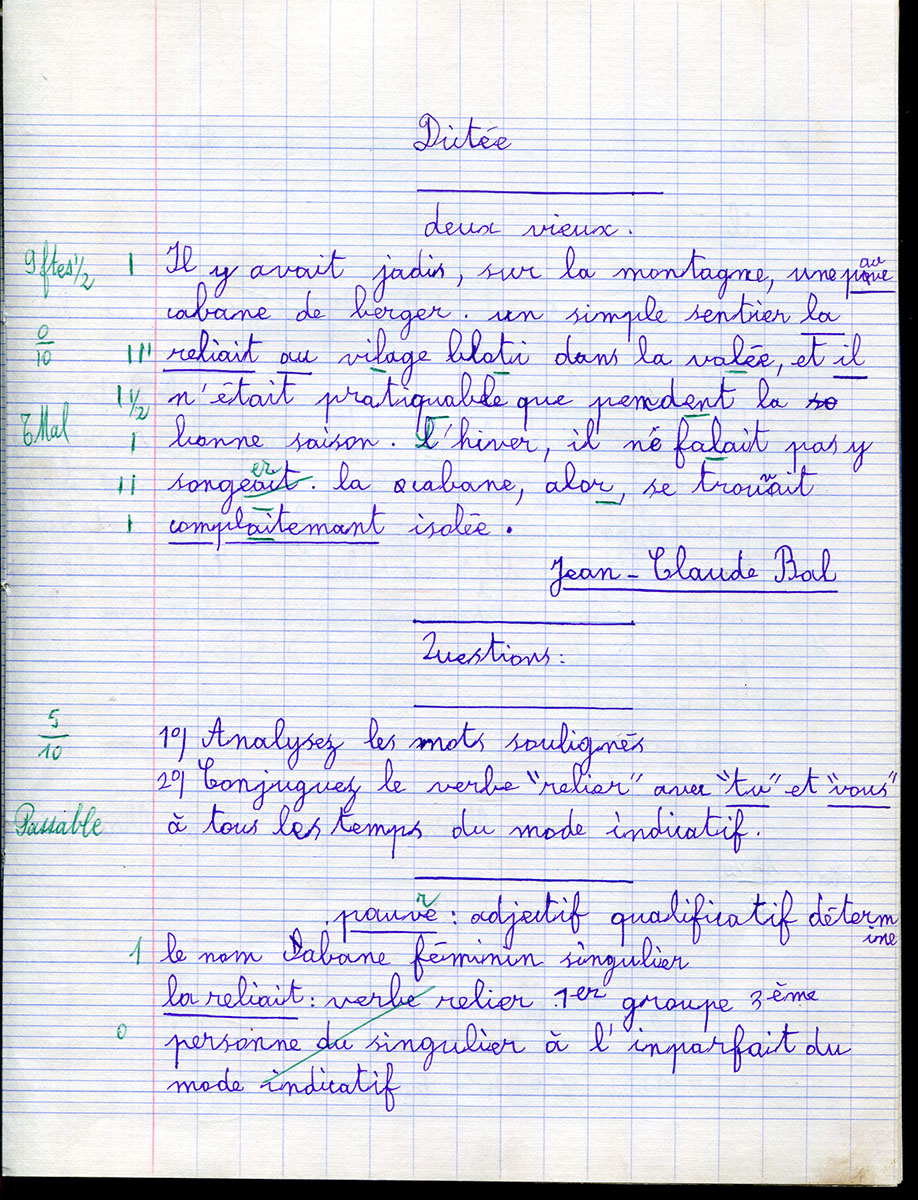 Dictée
deux vieux.
9 ftes 1/2 I Il y avait jadis, sur la montagne, une pauve
cabane de berger. un simple sentier la
0/10 III reliait au vilage bloti dans la valée, et il
I 1/2 n'était pratiquable que pendent la so
T Mal I bonne saison. L'hiver, il né falait pas y
II songeait er. la cabane, alor, se trouvait
I complaitemant isolée.
Jean-Claude Bal
Questions:
5/10 1º) Analysez les mots soulignés
2º) Conjuguez le verbe "relier" avec "tu" et "vous"
Passable à tous les temps du mode indicatif.
pauvre : adjectif qualificatif détermine
1 le nom cabane féminin singulier
la reliait : verbe relier 1er groupe 3ème
0 personne du singulier à l'inparfait du
mode indicatif